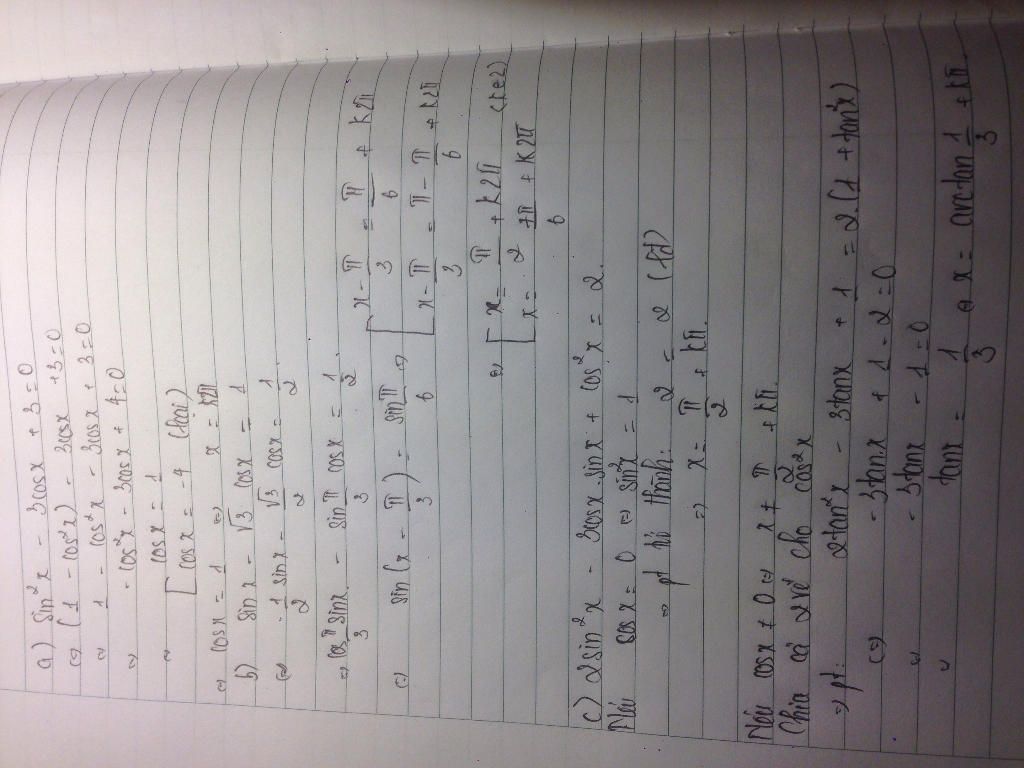 a) sin²x - 3cosx + 3 = 0
⇔ (1 - cos²x) - 3cosx + 3 = 0
⇔ 1 - cos²x - 3cosx + 3 = 0
⇔ - cos²x - 3cosx + 4 = 0
⇔ [ cosx = 1
cosx = -4 (loại)
⇔ cosx = 1 ⇔ x = k2π
b) sinx - √3 cosx = 1
⇔ 1/2 sinx - √3/2 cosx = 1/2
⇔ cos π/3 sinx - sin π/3 cosx = 1/2
⇔ sin(x - π/3) = sin π/6 ⇔ [ x - π/3 = π/6 + k2π
x - π/3 = π - π/6 + k2π
⇔ [ x = π/2 + k2π (k∈Z)
x = 7π/6 + k2π
c) 2sin²x - 3cosx.sinx + cos²x = 2.
Nếu cosx = 0 ⇔ sin²x = 1
⇒ pt trở thành: 2 = 2 (lđ)
⇒ x = π/2 + kπ.
Nếu cosx ≠ 0 ⇔ x ≠ π/2 + kπ.
Chia cả 2 vế cho cos²x
⇒ pt: 2tan²x - 3tanx + 1 = 2(1 + tan²x)
⇔ - 3tanx + 1 - 2 = 0
⇔ - 3tanx - 1 = 0
⇔ tanx = 1/3 ⇔ x = arctan 1/3 + kπ.